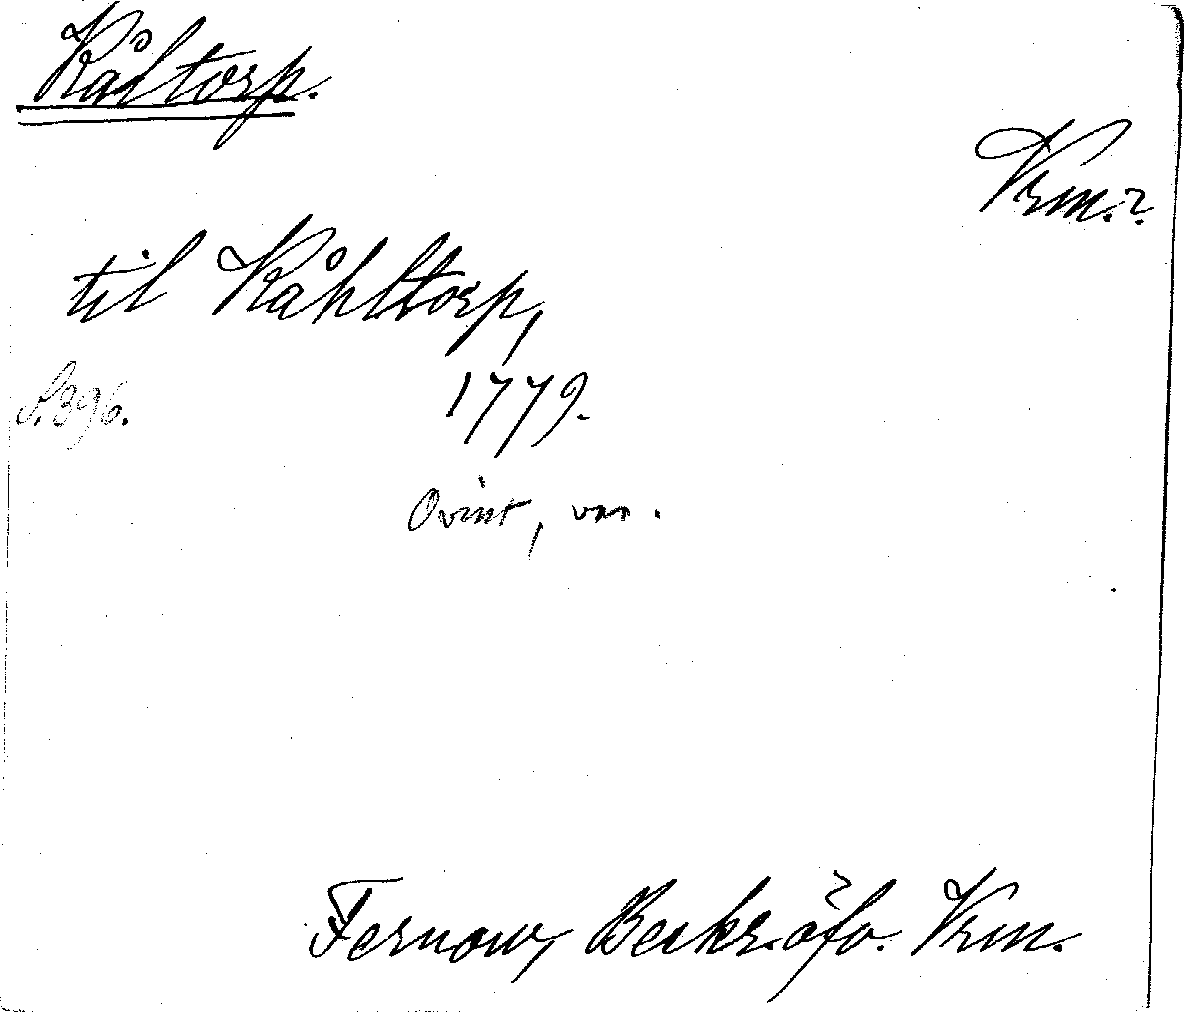 Kåltorp.
Vrm.?
til Kåhltorp,
S. 396.
1779.
Ovint, var.
Fernow, Beskr. öfv. Vrm.